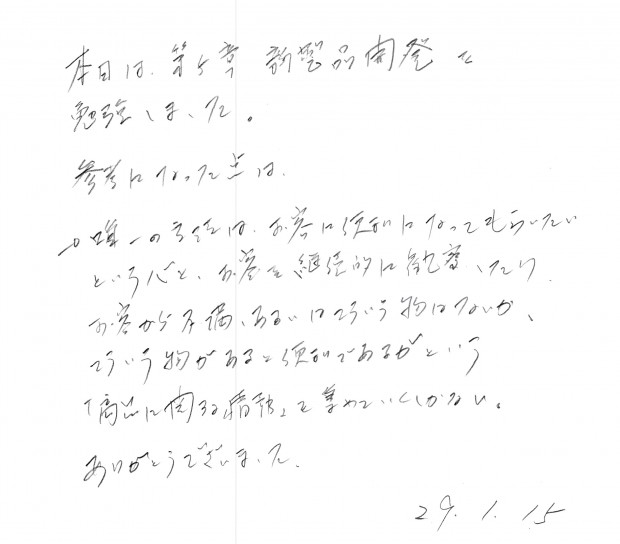 本日は、第5章 新製品開発を
勉強しました。
参考になった点は、
唯一の方法は、お客に便利になってもらいたい
という心と、お客を継続的に観察したり
お客から不満、あるいはこういう物はないか、
こういう物があると便利であるがという
「商品に関する情報」を集めていくしかない。
ありがとうございました。
29.1.15